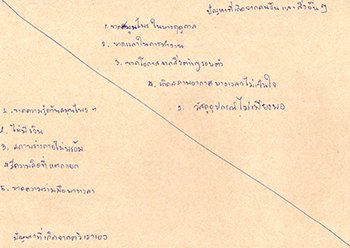 ปัญหาที่เกิดจากคนอื่น และสิ่งอื่น ๆ
1. ขาดสมุนไพรในบางฤดูกาล
2. ขาดเวลาในการทำงาน
3. ขาดโอกาสจากสิ่งต่างๆรอบตัว
4. เกิดสภาพอากาศบางเวลาไม่เป็นใจ
5. วัสดุอุปกรณ์ไม่เพียงพอ
1. ขาดความรู้ด้านสมุนไพร ๆ
2. ไม่มีเงิน
3. สภาพร่างกายไม่พร้อม
4. มีความคิดที่แตกแยก
5. ขาดความร่วมมือบางเวลา
ปัญหาที่เกิดจากตัวเราเอง